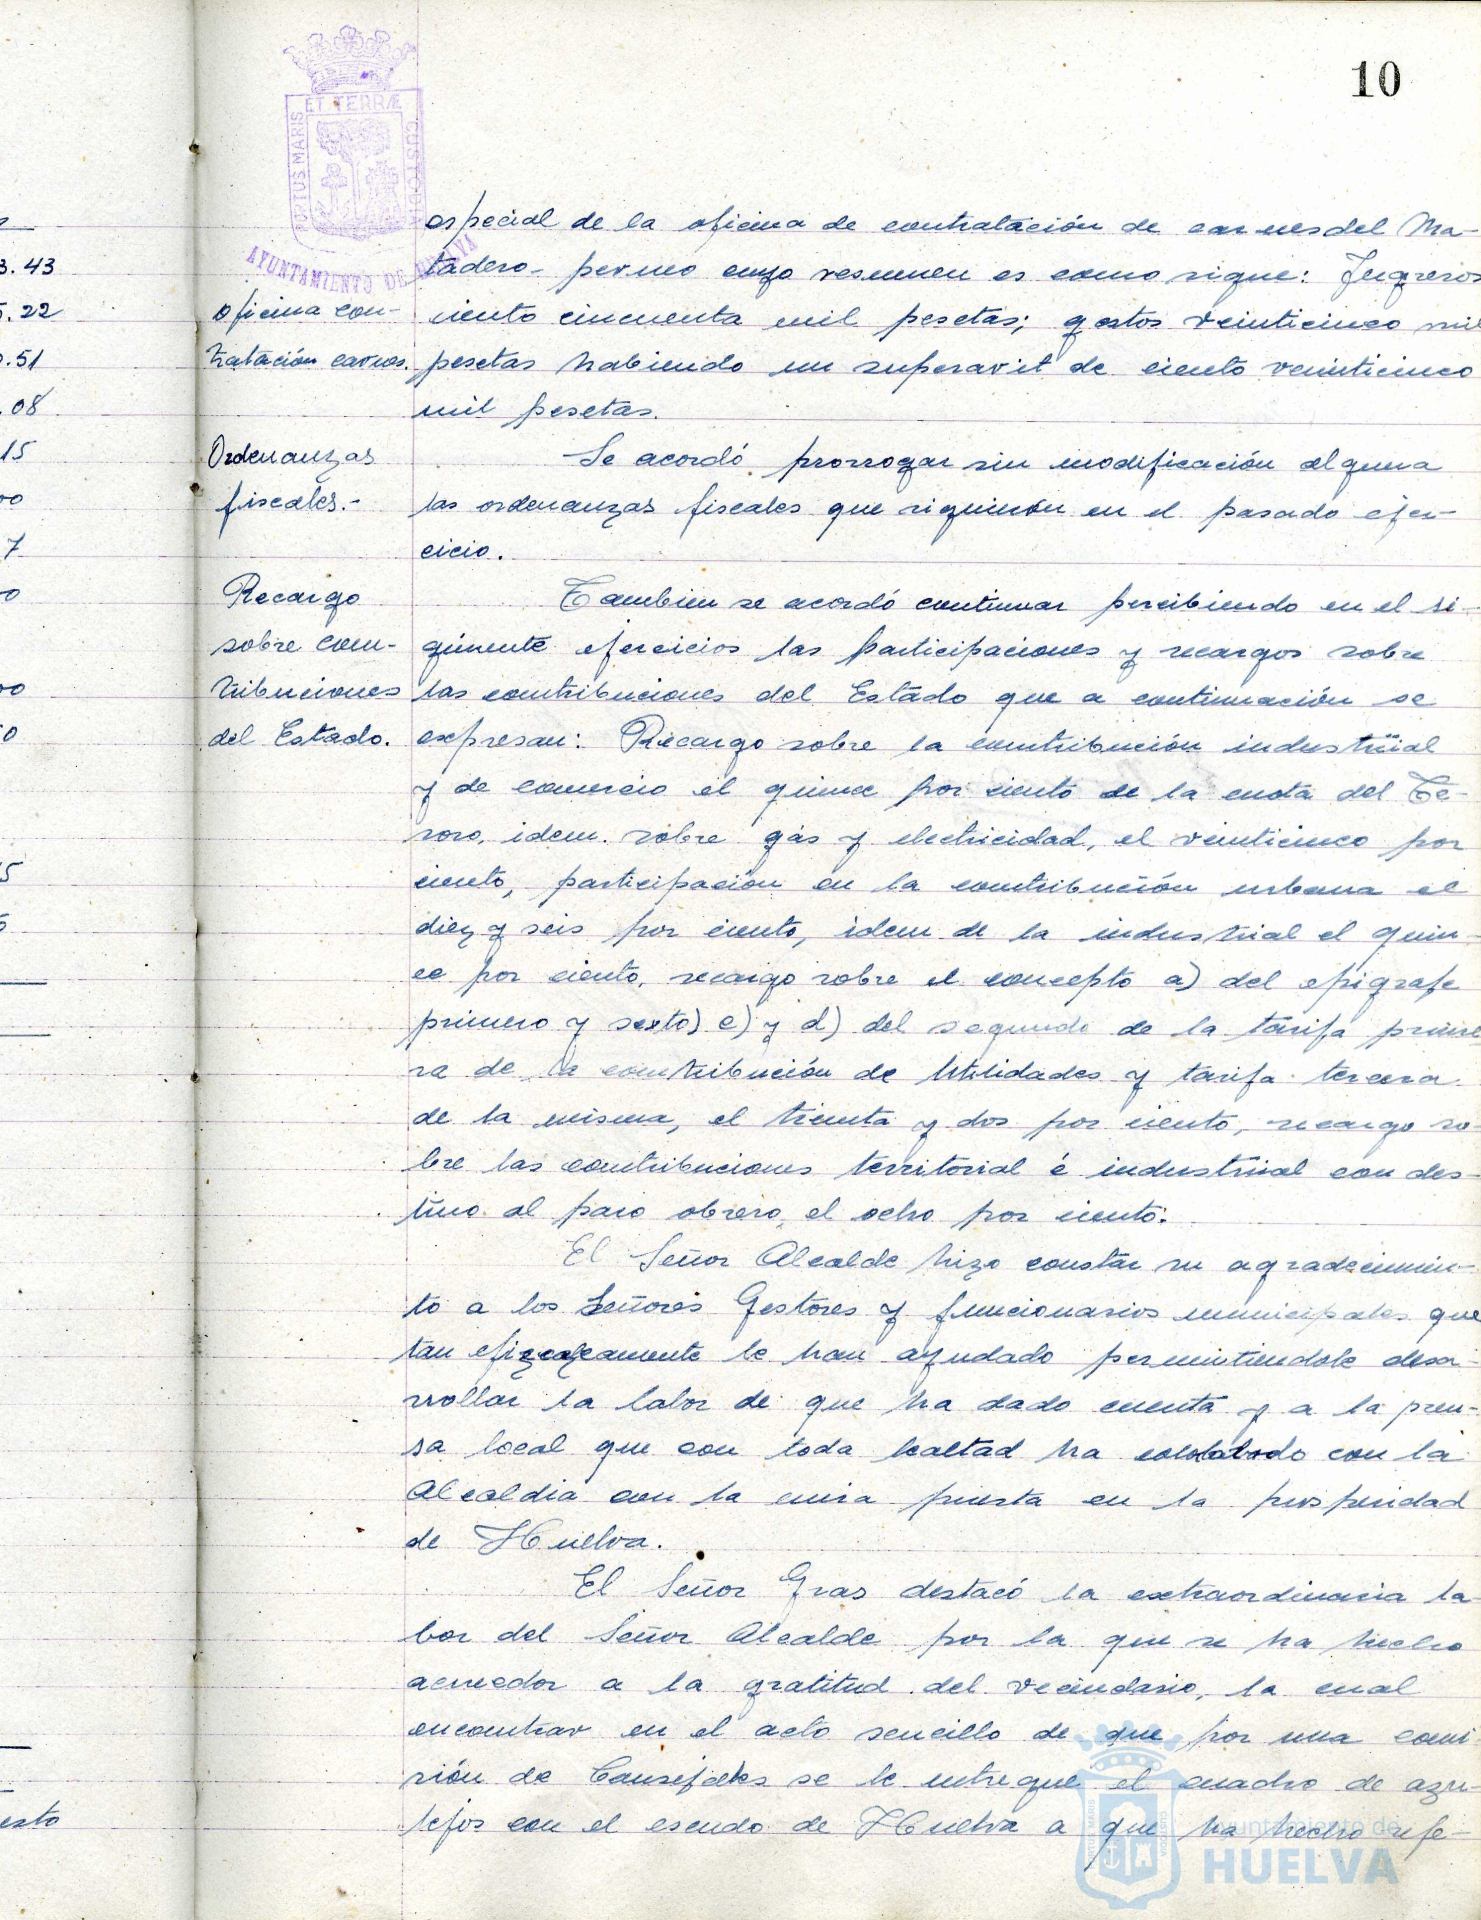 10
PORTUS MARIS ET TERRÆ CUSTODIA
AYUNTAMIENTO DE HUELVA
especial de la oficina de contratación de carnes del Ma-
tadero- permeo cuyo resumen es como sigue: Ingresos
ciento cincuenta mil pesetas; gastos veinticinco mil
pesetas habiendo un superavit de ciento veinticinco
mil pesetas.
oficina con-
tratación carnes.
Ordenanzas
fiscales.-
Se acordó prorrogar sin modificación alguna
las ordenanzas fiscales que siguieron en el pasado ejer-
cicio.
Recargo
sobre con-
tribuciones
del Estado.
Tambien se acordó continuar percibiendo en el si-
guiente ejercicios las participaciones y recargos sobre
las contribuciones del Estado que a continuación se
expresan: Recargo sobre la contribución industrial
y de comercio el quince por ciento de la cuota del Te-
soro, idem. sobre gas y electricidad, el veinticinco por
ciento, participación en la contribución urbana el
diez y seis por ciento, idem de la industrial el quin-
ce por ciento, recargo sobre el concepto a) del epigrafe
primero y sexto) c) y d) del segundo de la tarifa prime-
ra de la contribución de Utilidades y tarifa tercera
de la misma, el treinta y dos por ciento, recargo so-
bre las contribuciones territorial é industrial con des-
tino al paro obrero, el ocho por ciento.
El Señor Alcalde hizo constar su agradecimien-
to a los Señores Gestores y funcionarios municipales que
tan le han ayudado permitiendole desa-
rrollar la labor de que ha dado cuenta y a la pren-
sa local que con toda lealtad ha colaborado con la
Alcaldia con la mira puesta en la prosperidad
de Huelva.
El Señor Gras destacó la extraordinaria la-
bor del Señor Alcalde por la que se ha hecho
acreedor a la gratitud del vecindario, la cual
encontrar en el acto sencillo de que por una comi-
sión de Consejales se le entregue el cuadro de azu-
lejos con el escudo de Huelva a que ha hecho refe-
3.43
.22
.51
.08
15
00
7
0
00
0
5
5
esto
Ayuntamiento de
HUELVA